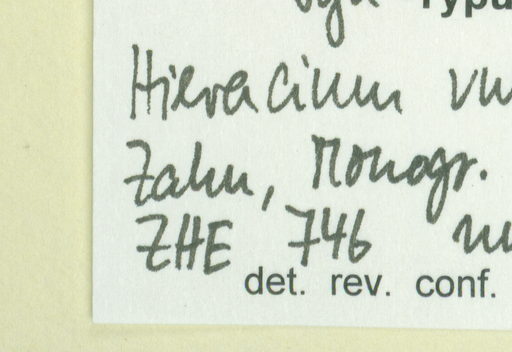 Hieracium
Zahn, Monogr.
ZHE 746
det. rev. conf.